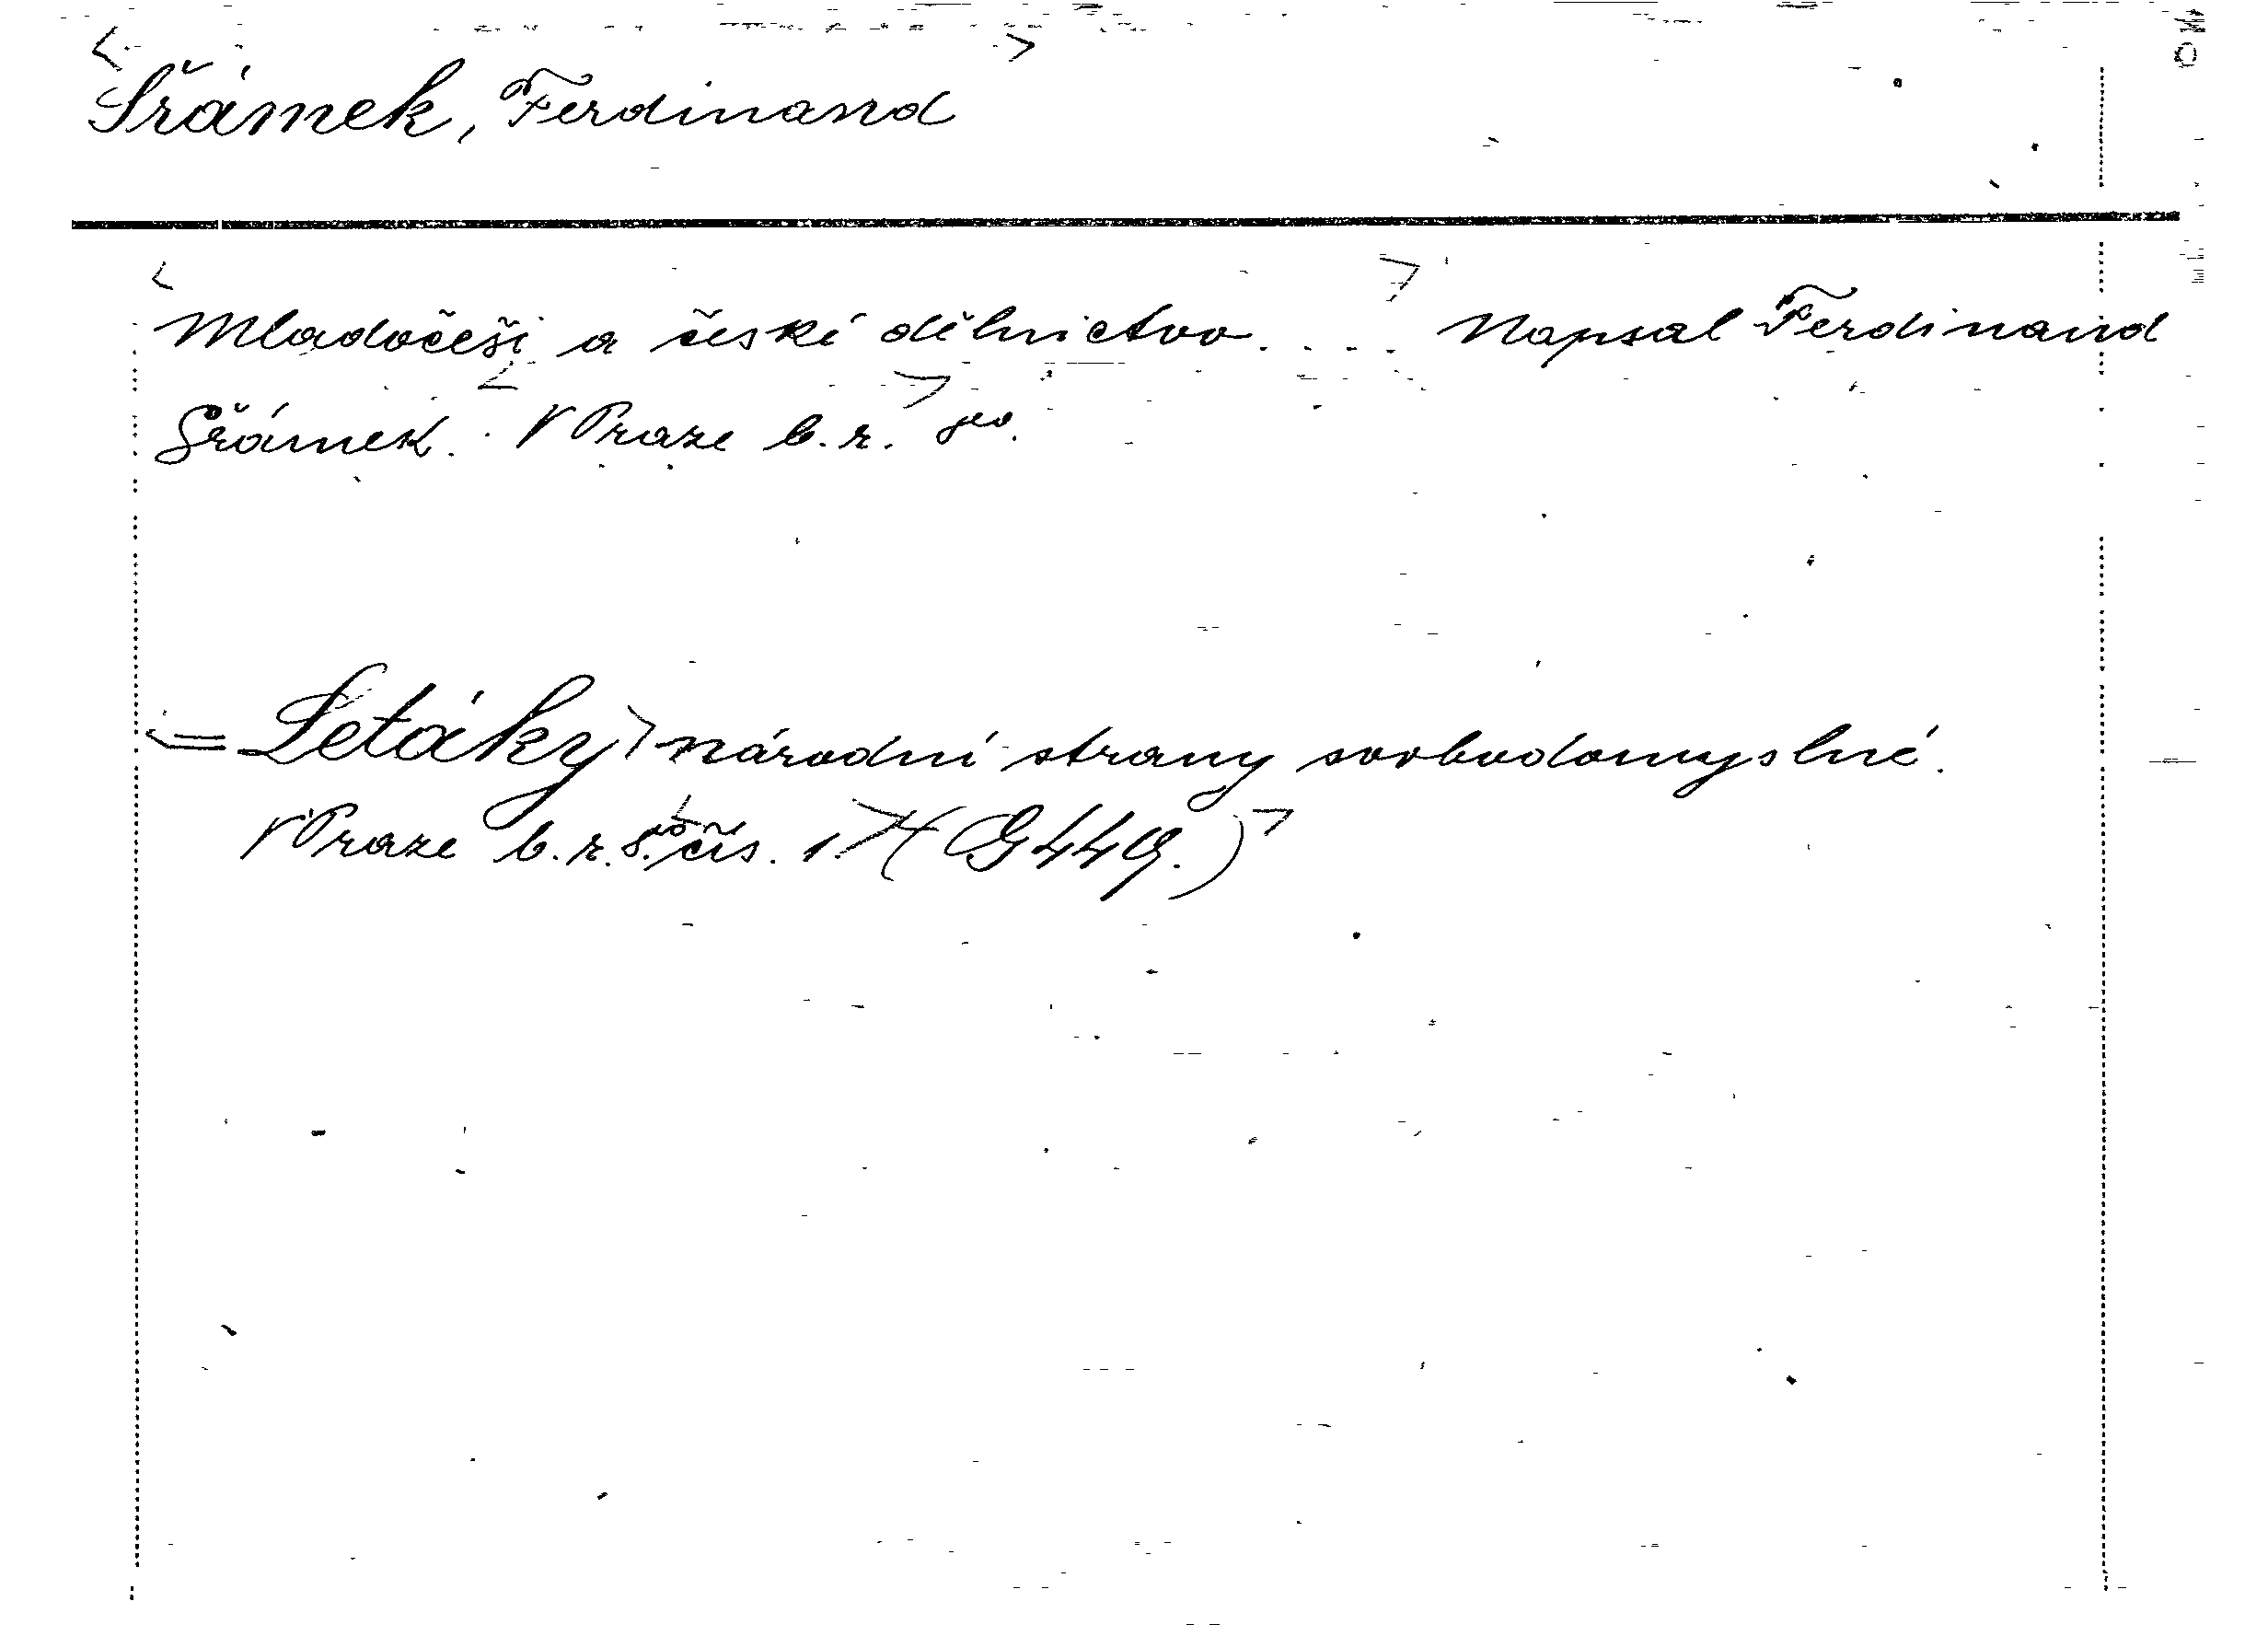 Šrámek, Ferdinand
Mladočeši a české dělnictvo.... Napsal Ferdinand
Šrámek. V Praze b. r. 8o.
= Letáky národní strany svobodomyslné.
V Praze b. r. 8o. čís. 1. (G 449.)